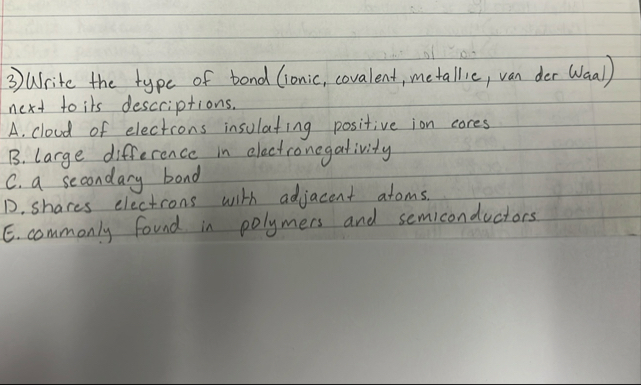 3) Write the type of bond (ionic, covalent, metallic, van der Waal)
next to its descriptions.
A. cloud of electrons insulating positive ion cores
B. large difference in electronegativity
C. a secondary bond
D. shares electrons with adjacent atoms.
E. commonly found in polymers and semiconductors